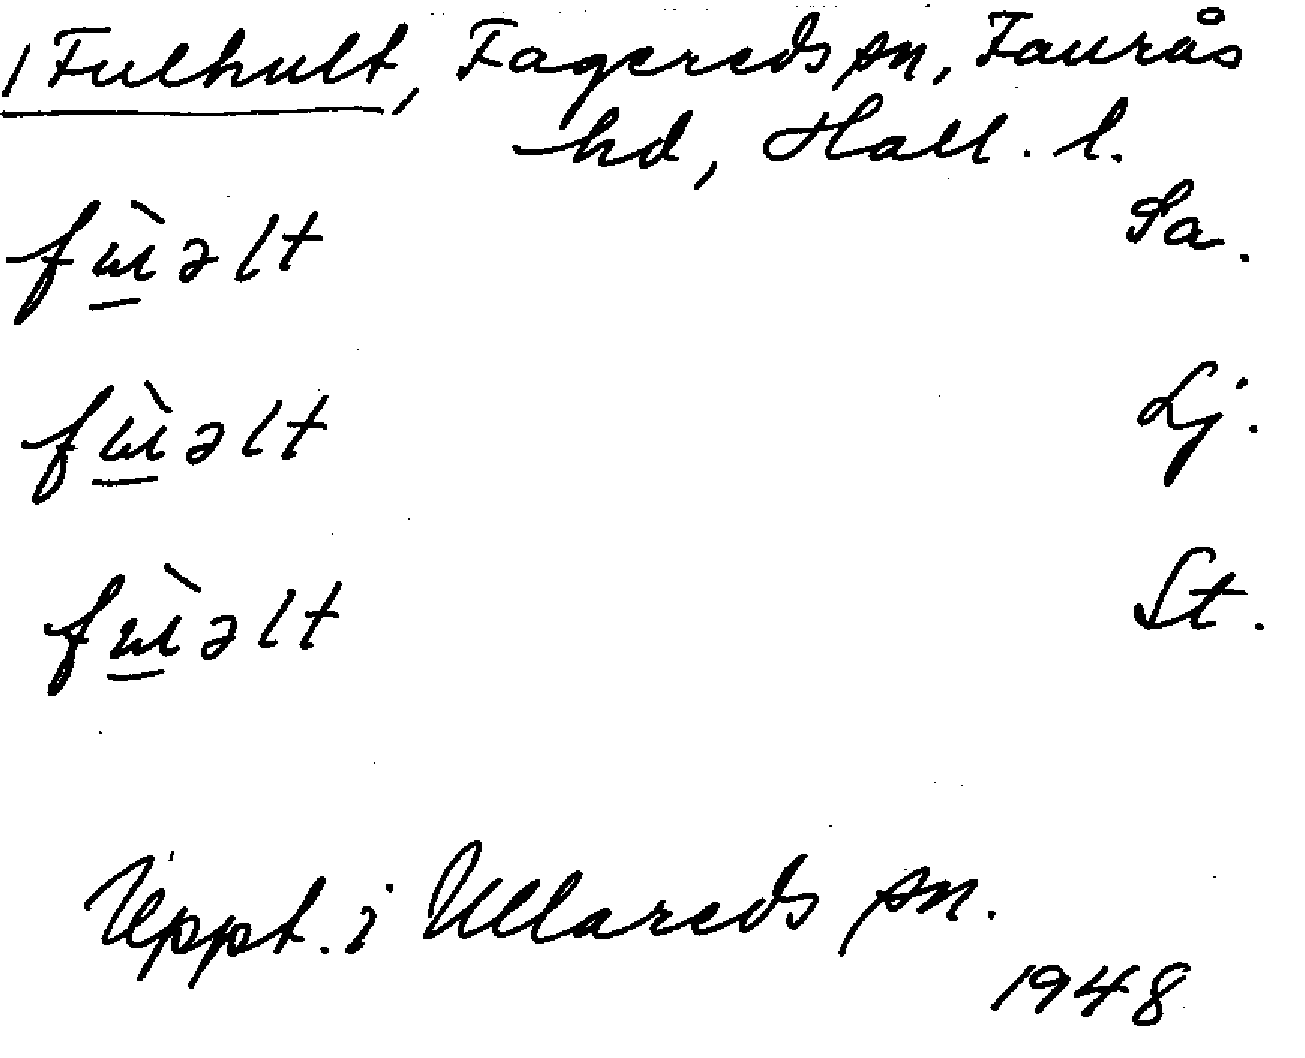 /Fulhult, Fagereds sn, Faurås
hd, Hall. l.
fɯ̀əlt Sa.
fɯ̀əlt Lj.
fɯ̀əlt St.
Uppt. i Ullareds sn.
1948